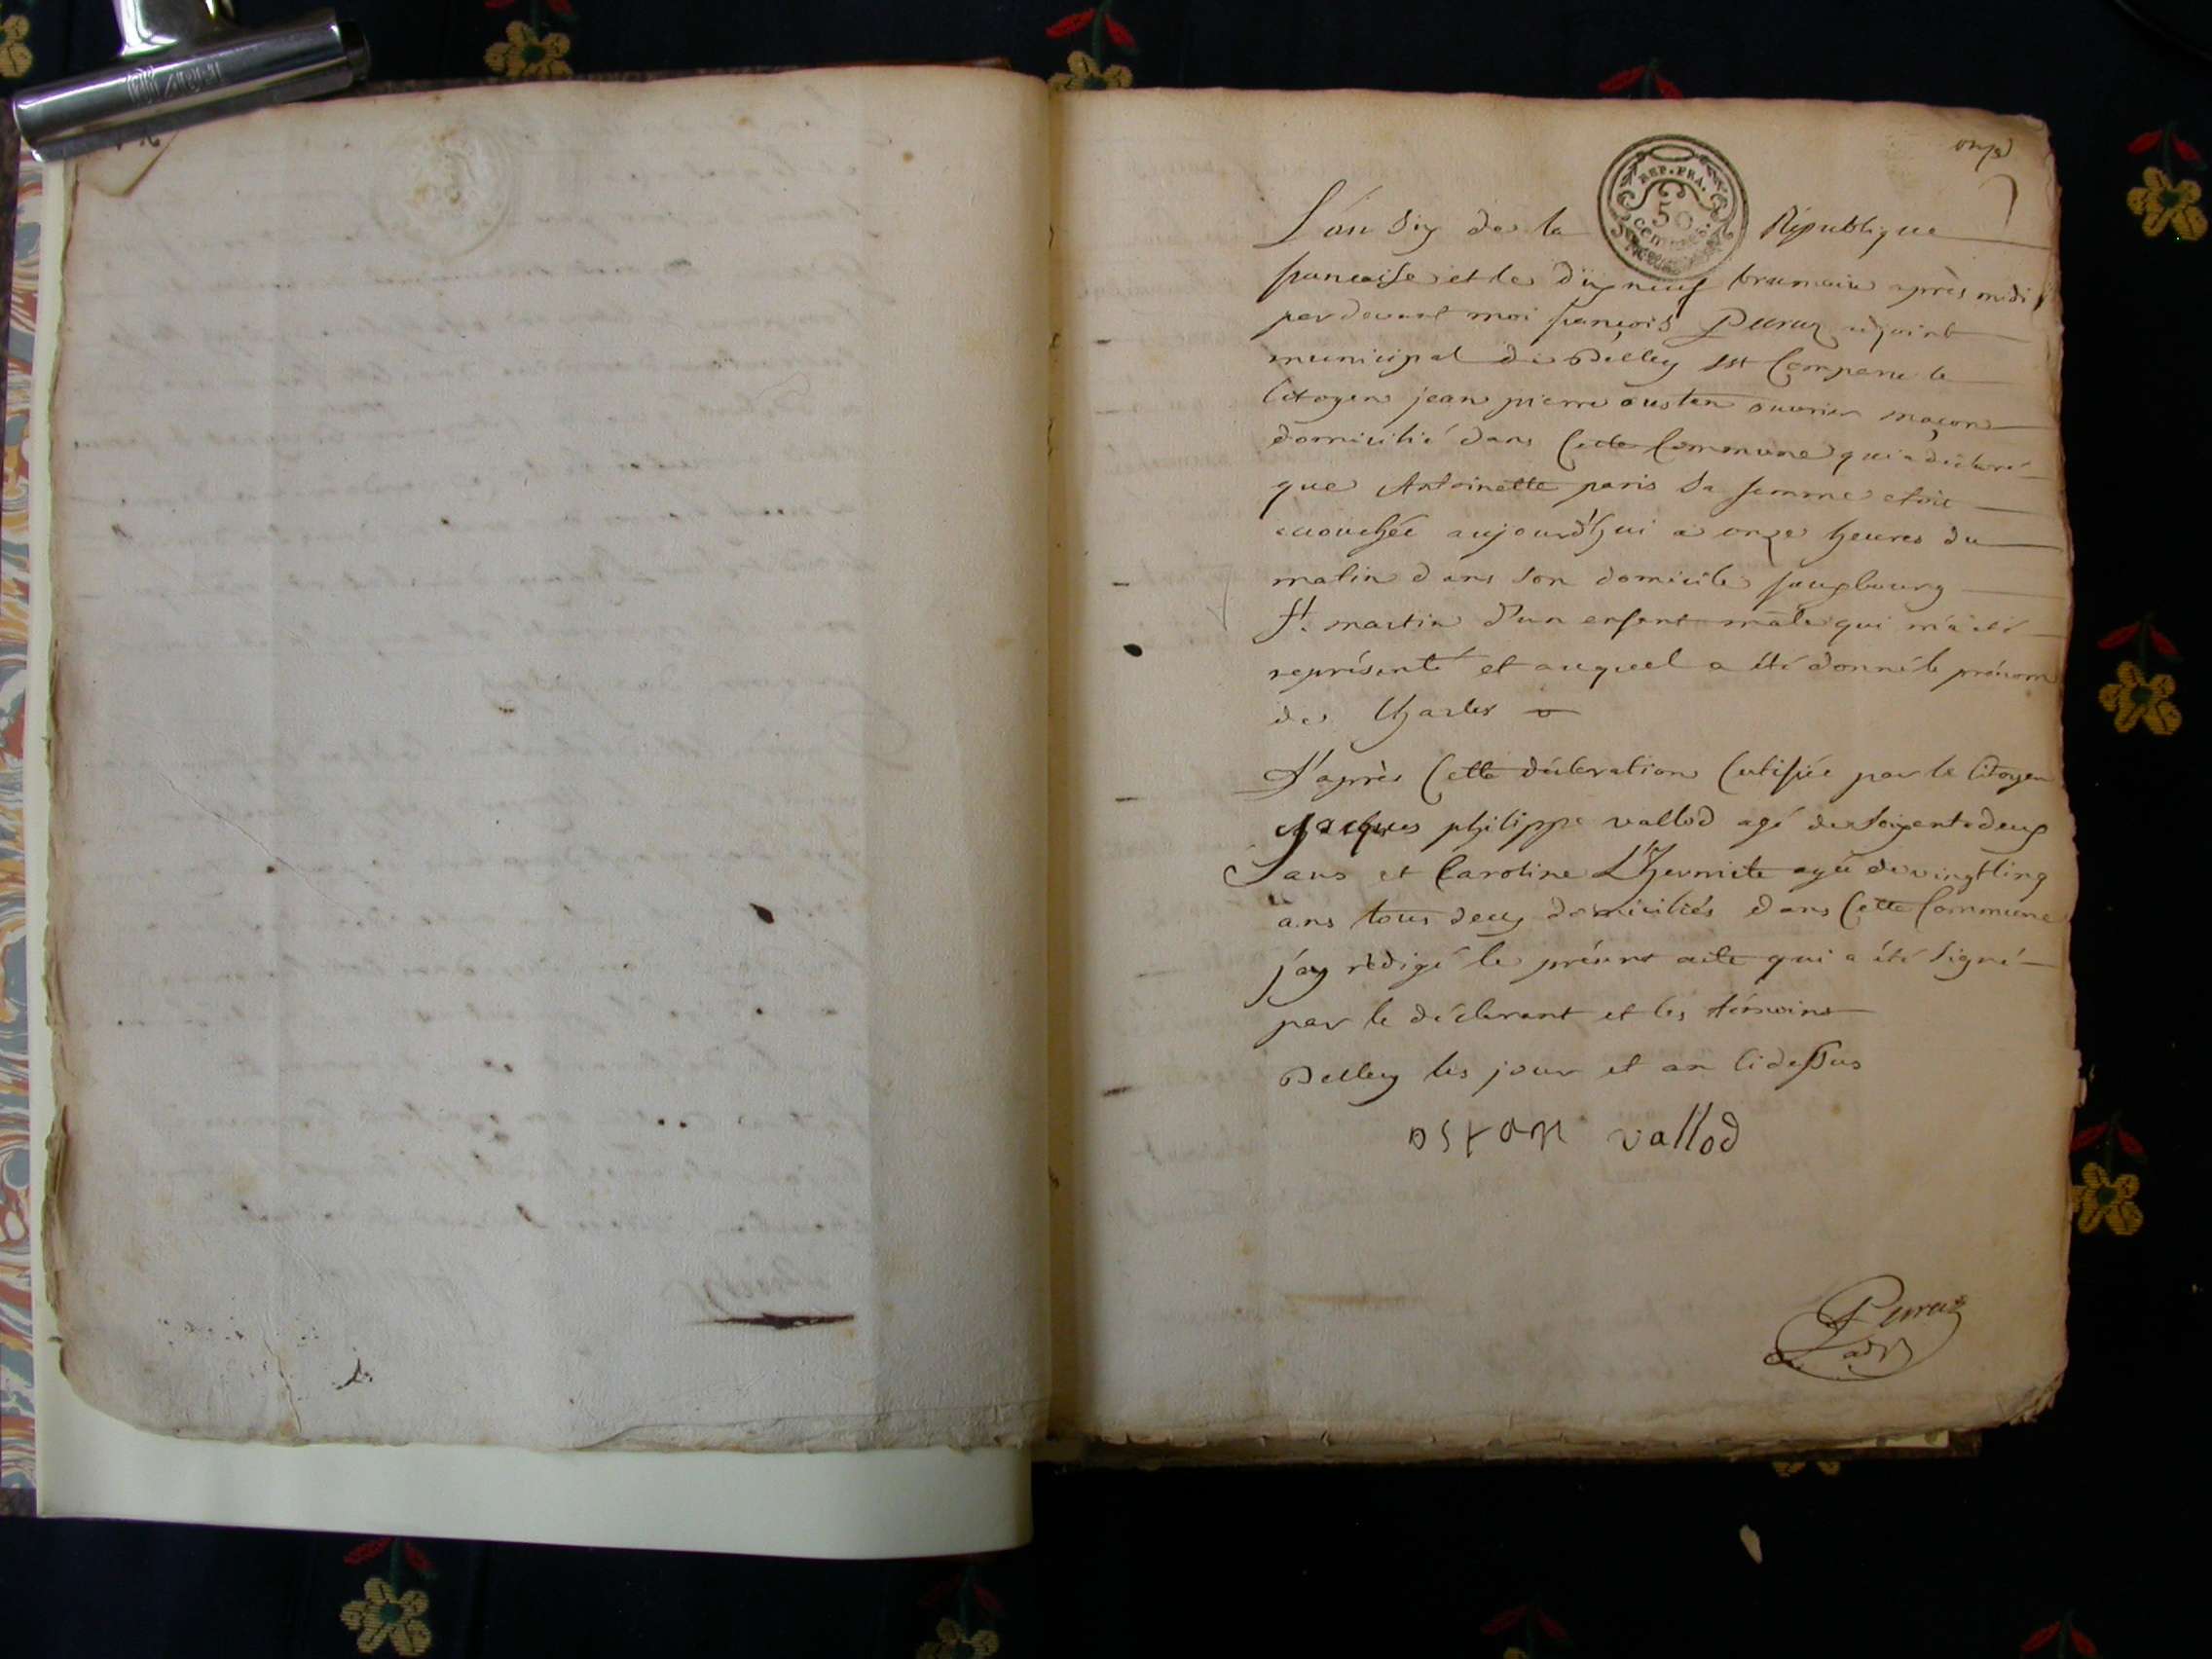 onze
REP. FRA.
50
centimes
L'an dix de la République
francaise et le dix neuf brumaire après midi
par devant moi françois Peruz adjoint
municipal de Belley est Comparu le
Citoyen jean pierre ousten ouvrier maçon
domicilié dans Cette Commune qui a déclaré
que Antoinette paris sa femme etoit
accouchée aujourd'hui a onze heures du
matin dans son domicile fauxbourg
St. martin d'un enfant mâle qui m'a été
représenté et auquel a été donné le prénom
de Charles
D'après Cette déclaration Certifiée par le Citoyen
Jacques philippe vallod agé de soixente deux
ans et Caroline L'hermite agée de vingt Cinq
ans tous deux domiciliés dans Cette Commune
j'ay rédigé le présent acte qui a été signé
par le déclarant et les témoins
Belley les jour et an Cidessus
ostan vallod
Peruz
adj